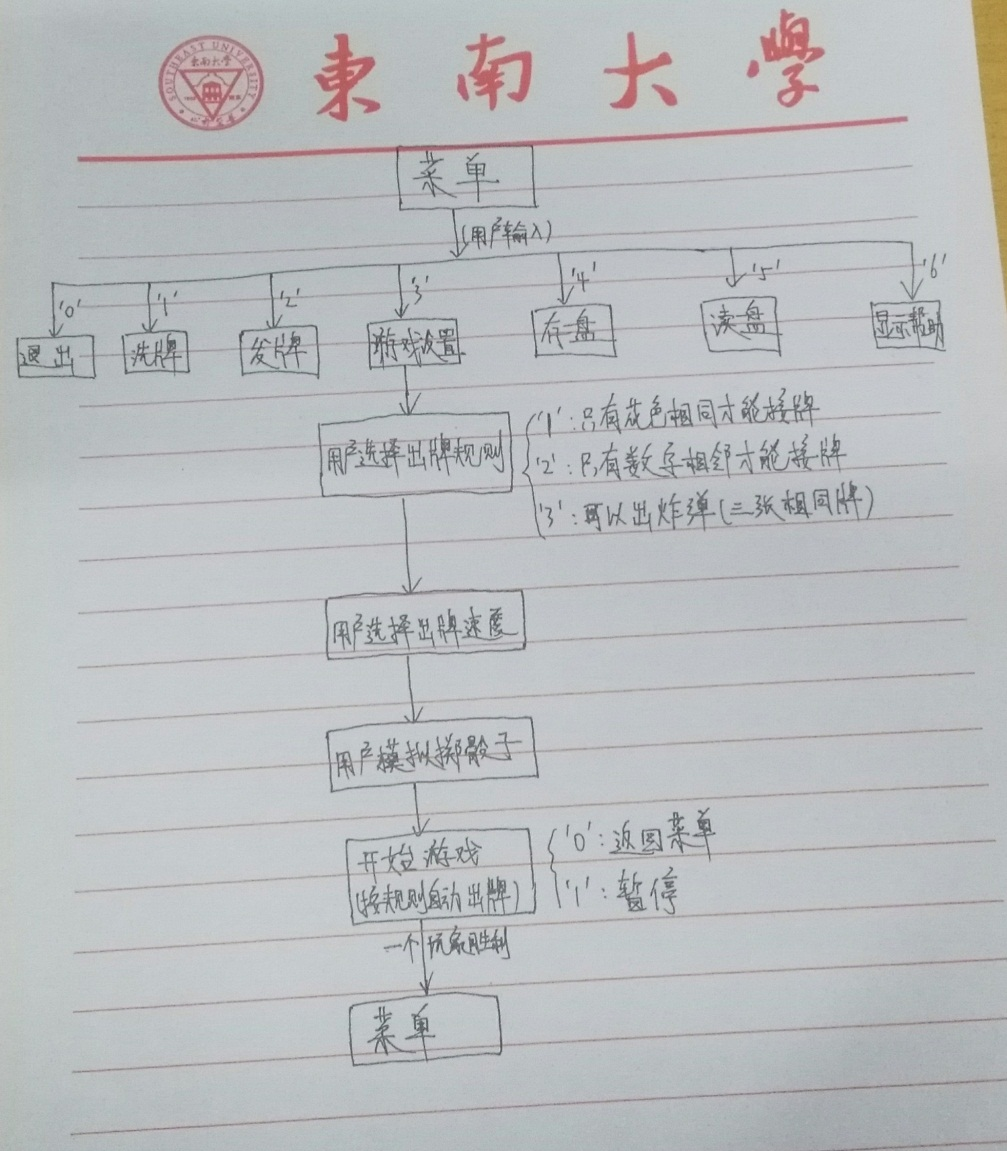 SOUTHEAST UNIVERSITY
東南大學
東南大學
菜单
(用户输入)
'0' '1' '2' '3' '4' '5' '6'
退出 洗牌 发牌 游戏设置 存盘 读盘 显示帮助
用户选择出牌规则
'1':只有花色相同才能接牌
'2':只有数字相邻才能接牌
'3':可以出炸弹(三张相同牌)
用户选择出牌速度
用户模拟掷骰子
开始游戏
(按规则自动出牌)
'0':返回菜单
'1':暂停
一个玩家胜利
菜单